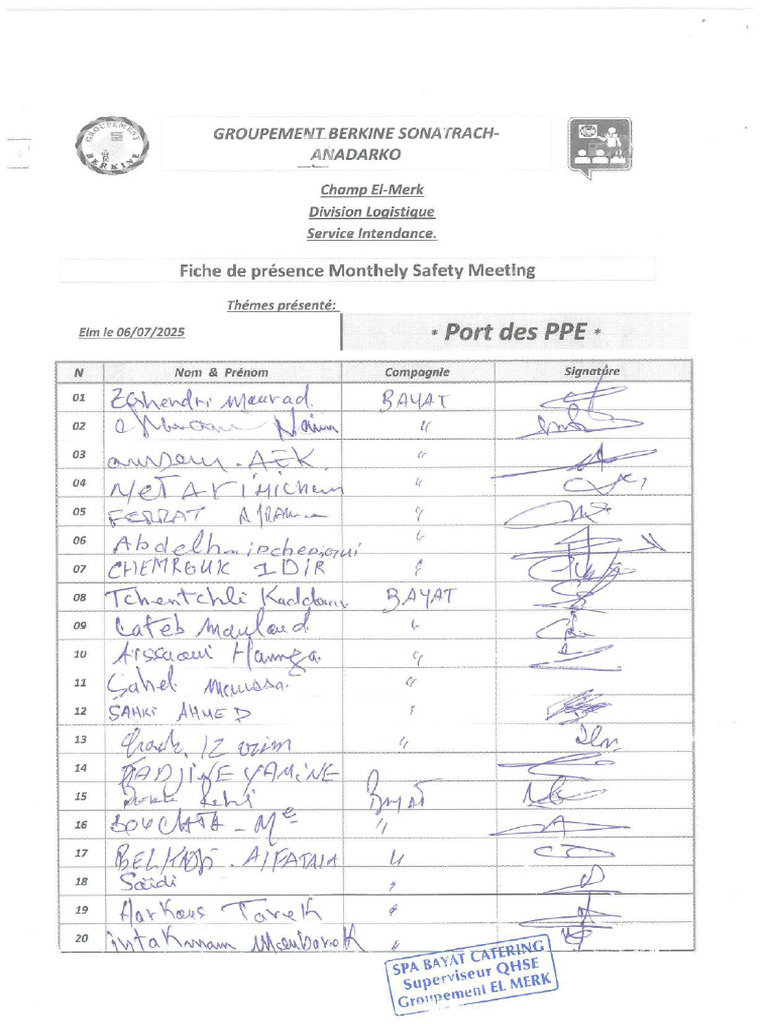 GROUPEMENT BERKINE
GROUPEMENT BERKINE SONATRACH-
ANADARKO
Champ El-Merk
Division Logistique
Service Intendance.
Fiche de présence Monthely Safety Meeting
Thémes présenté:
Elm le 06/07/2025
* Port des PPE *
N Nom & Prénom Compagnie Signature
01 Zehendri Mourad. BAYAT
02 Naim "
03 AEK. "
04 "
05 FERRAT "
06 "
07 CHEMROUK IDIR "
08 Tchentchli Kaddour BAYAT
09 Cateb Mouloud "
10 Aissaoui Hamza. "
11 Sahel Moussa "
12 SAHKI AHMED
13 "
14 HADJINE YAMINE
15 Bayat
16 "
17 "
18 Saïdi "
19 Harkous Tarek "
20 intaKmam MoubaroK "
SPA BAYAT CATERING
Superviseur QHSE
Groupement EL MERK